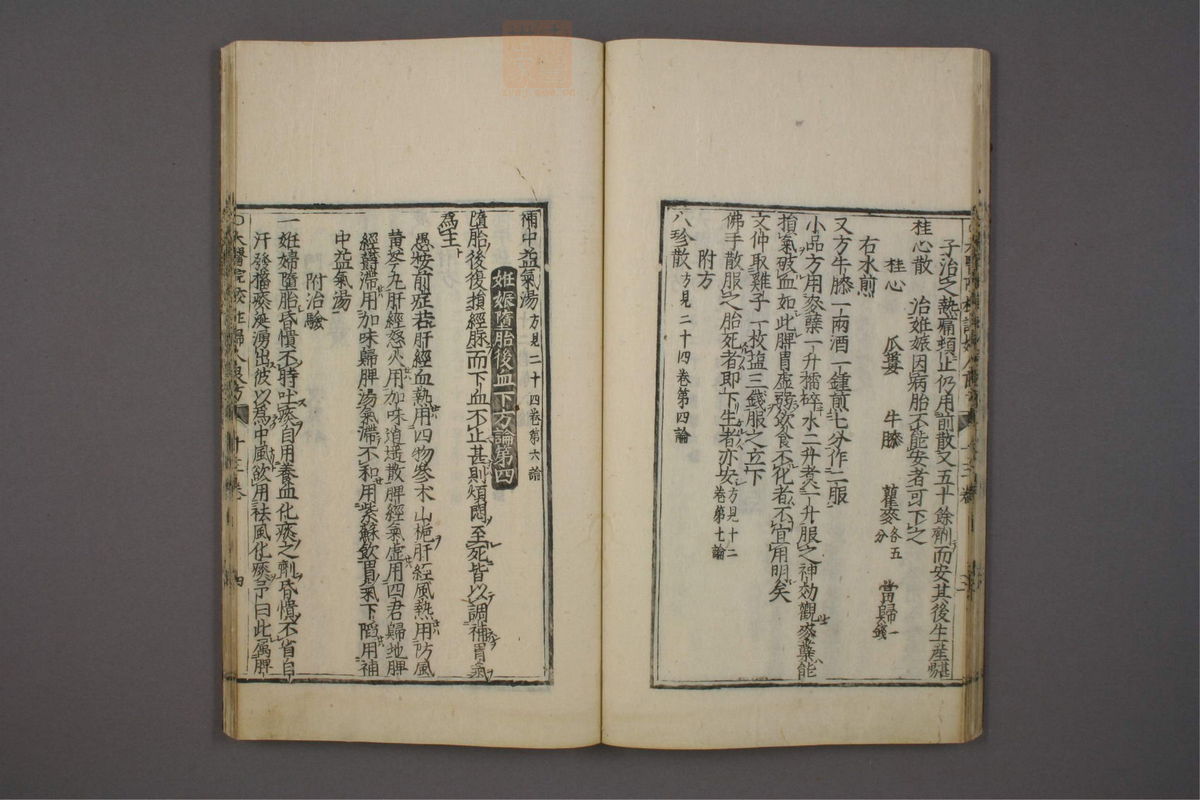 子治之熱痛頓止仍用前散又五十餘劑而安其後生産甚易
桂心散　治姙娠因病胎不能安者可下之
桂心　瓜蔞　牛膝　瞿麥各五分　當歸一錢
右水煎
又方牛膝一兩酒一鍾煎七分作二服
小品方用麥蘖一升擂碎水二升煮一升服之神効觀麥蘖能
損氣破血如此脾胃虛弱飲食不化者不宜用明矣
文仲取雞子一枚盐三錢服之立下
佛手散服之胎死者即下生者亦安方見十二卷第七論
附方
八珍散方見二十四卷第四論
補中益氣湯方見二十四卷第六論
姙娠墮胎後血下方論第四
墮胎後復損經脉而下血不止甚則煩悶至死皆以調補胃氣
為主
愚按前症若肝經血熱用四物參朮山梔肝經風熱用防風
黄芩丸肝經怒火用加味逍遙散脾經氣虛用四君歸地脾
經鬱滯用加味歸脾湯氣滯不和用紫蘇飲胃氣下陷用補
中益氣湯
附治驗
一姙婦墮胎昏憒不時吐痰自用養血化痰之劑昏憒不省自
汗發搐痰涎湧出彼以為中風飲用祛風化痰予曰此属脾
太醫院校註婦人良方　十三卷　四